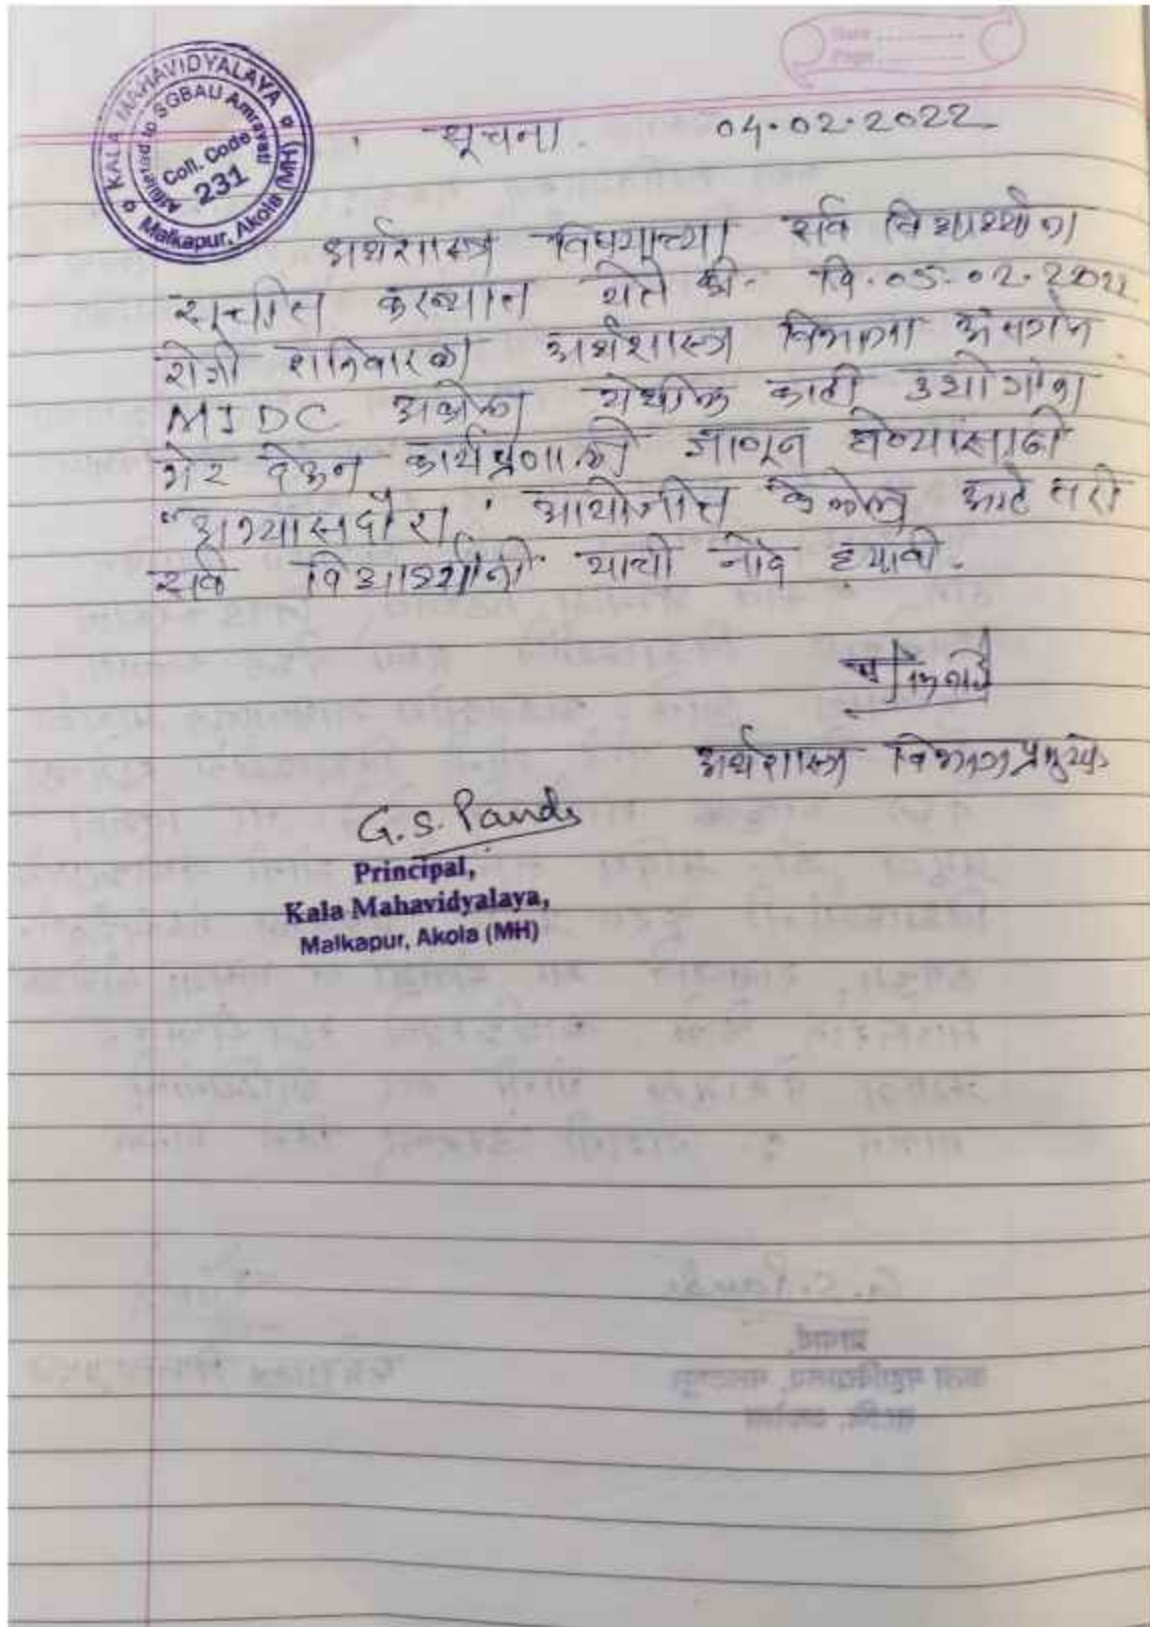 Date ............
Page ............
KALA MAHAVIDYALAYA
Affilierad to SGBAU Amravati
Coll. Code
231
Malkapur, Akola (MH)
सूचना. 04.02.2022
अर्थशास्त्र विषयाच्या सर्व विद्यार्थ्यांना
सूचीत करण्यात येते की- दि.05.02.2022
रोजी शनिवारला अर्थशास्त्र विभागा अंतर्गत
MIDC अकोला येथील काही उद्योगांना
भेट देऊन कार्यप्रणाली जाणून घेण्यासाठी
"अभ्यासदौरा" आयोजीत केलेला आहे तरी
सर्व विद्यार्थ्यांनी याची नोंद घ्यावी.
अर्थशास्त्र विभाग प्रमुख
G.S. Pande
Principal,
Kala Mahavidyalaya,
Malkapur, Akola (MH)